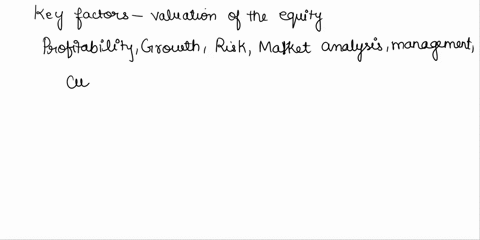 Key factors - valuation of the equity
Profitability, Growth, Risk, Market analysis, management,
Cu